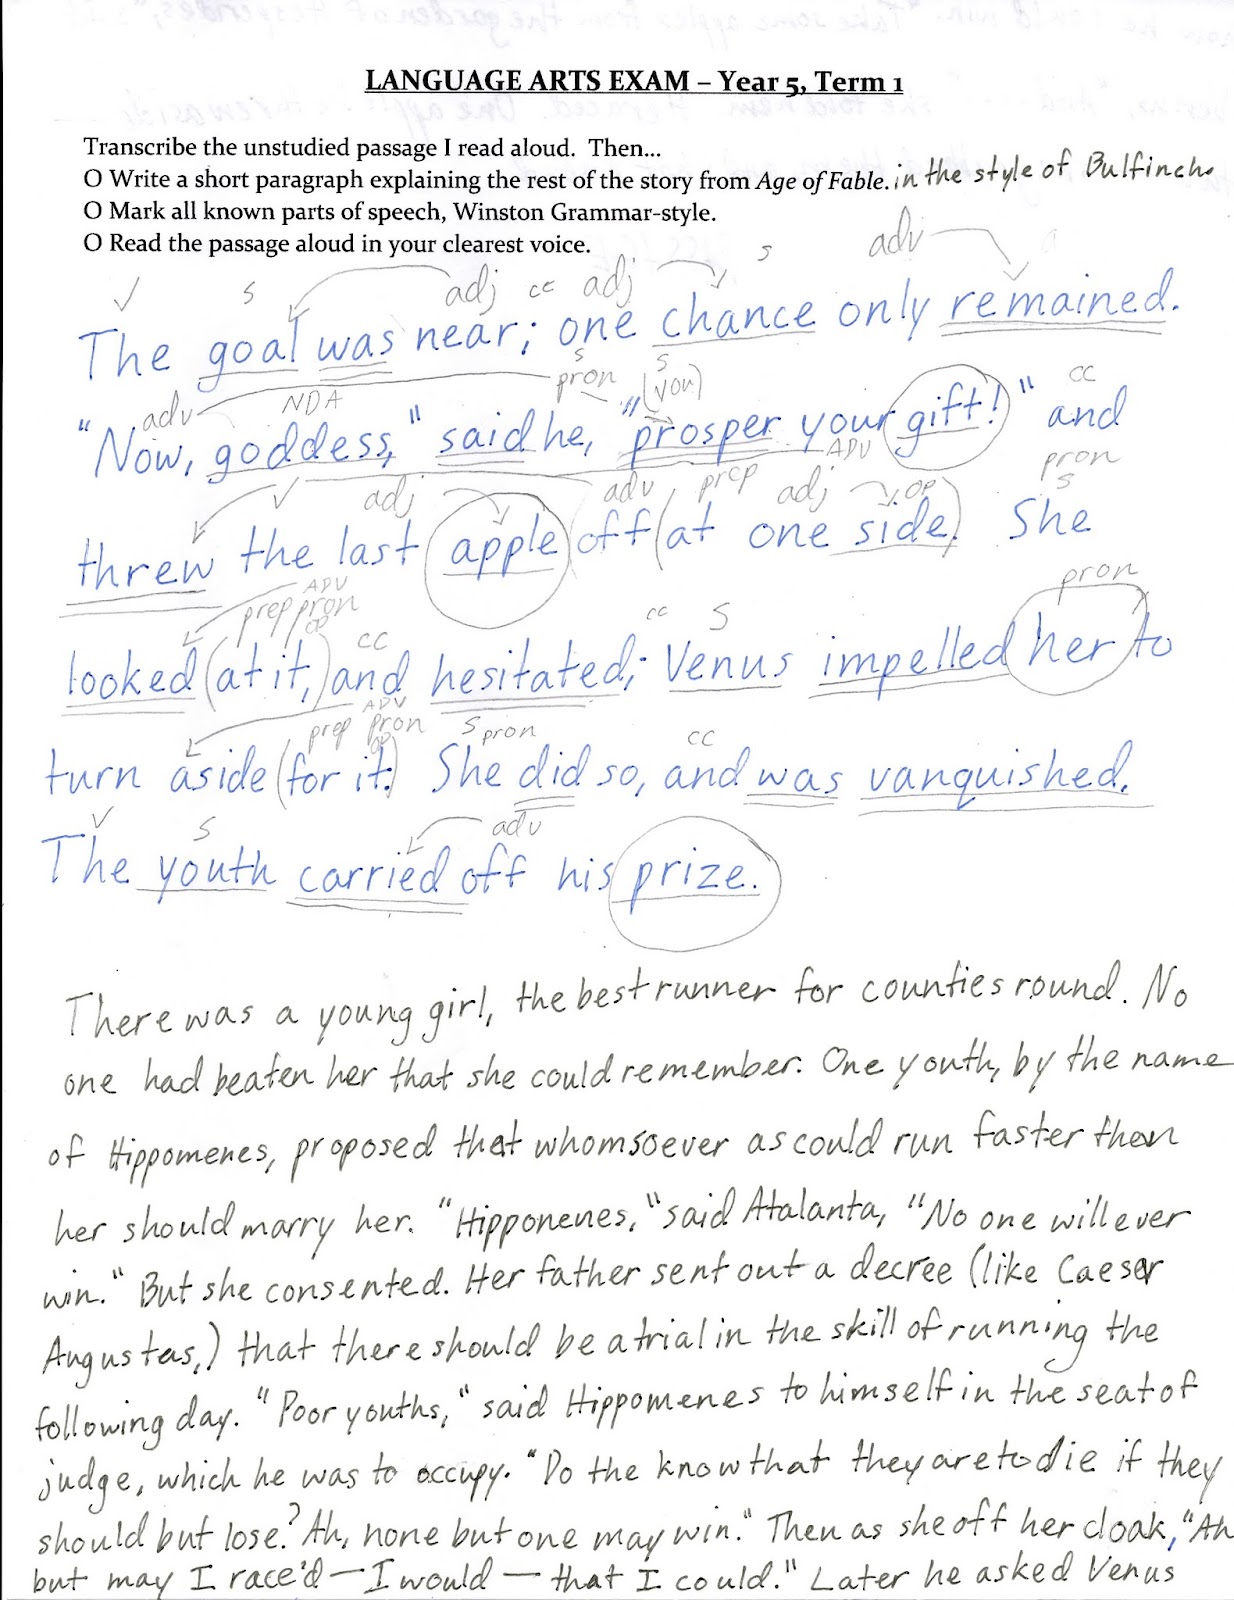 LANGUAGE ARTS EXAM – Year 5, Term 1
Transcribe the unstudied passage I read aloud. Then...
O Write a short paragraph explaining the rest of the story from Age of Fable. in the style of Bulfinch.
O Mark all known parts of speech, Winston Grammar-style.
O Read the passage aloud in your clearest voice.
adv
s adj cc adj s
The goal was near; one chance only remained.
adv NDA s pron s (you) cc
"Now, goddess," said he, "prosper your gift!" and
adj adv prep adj ADV OP pron s
threw the last apple off (at one side). She
prep ADV pron OP cc cc S pron
looked (at it,) and hesitated; Venus impelled her to
prep ADV pron OP s pron cc
turn aside (for it.) She did so, and was vanquished.
s adv
The youth carried off his prize.
There was a young girl, the best runner for counties round. No
one had beaten her that she could remember. One youth, by the name
of Hippomenes, proposed that whomsoever as could run faster then
her should marry her. "Hipponenes," said Atalanta, "No one will ever
win." But she consented. Her father sent out a decree (like Caeser
Augustas,) that there should be a trial in the skill of running the
following day. "Poor youths," said Hippomenes to himself in the seat of
judge, which he was to occupy. "Do the know that they are to die if they
should but lose? Ah, none but one may win." Then as she off her cloak, "Ah
but may I race'd — I would — that I could." Later he asked Venus